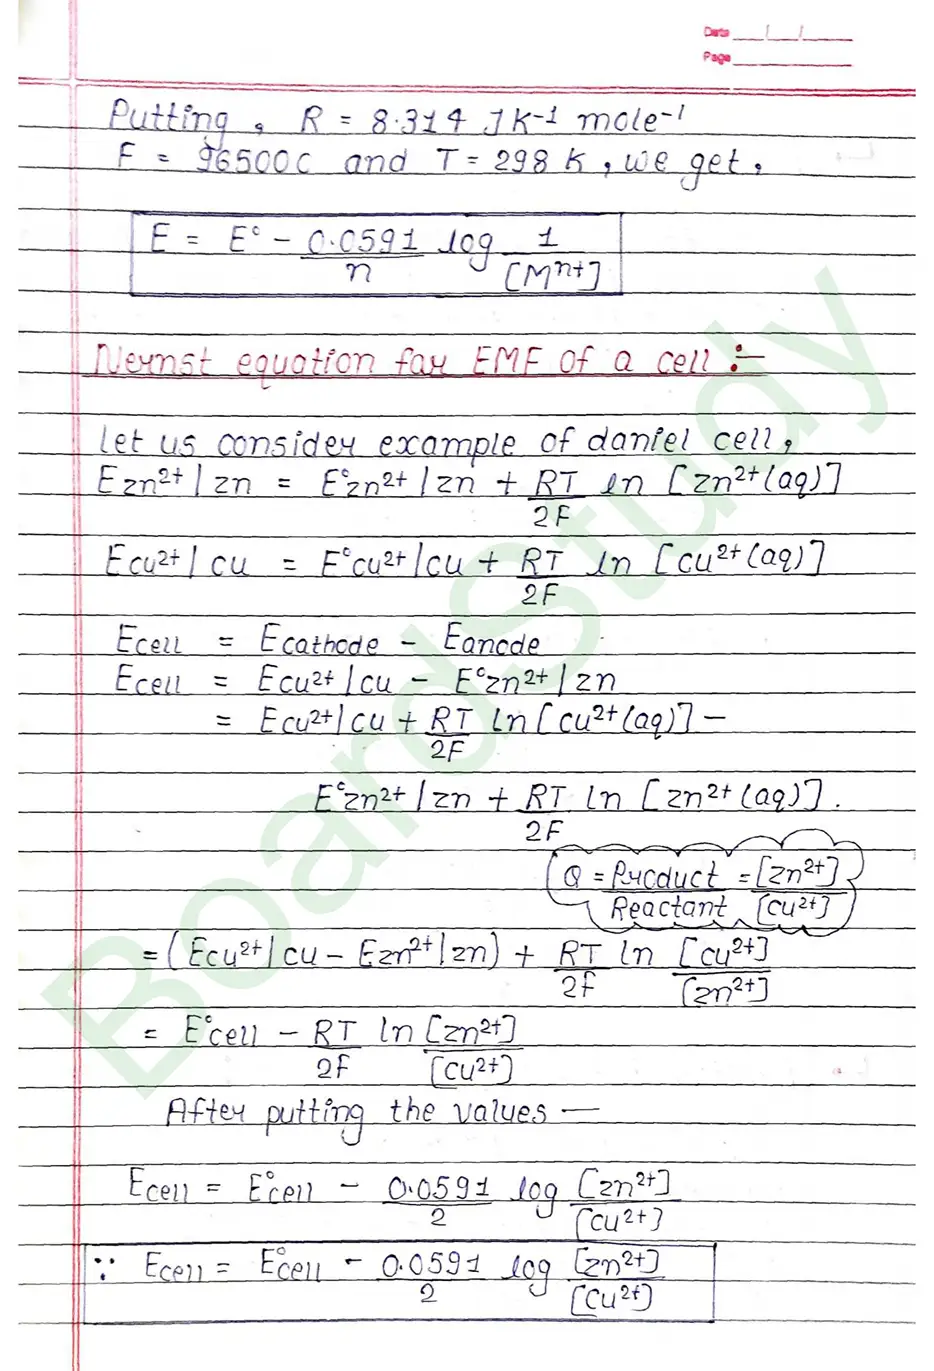 Date __/__/__
Page ______
Putting, R = 8.314 JK-1 mole-1
F = 96500C and T = 298 K, we get,
E = E° - 0.0591/n log 1/[Mn+]
Nernst equation for EMF of a cell :-
Let us consider example of daniel cell,
E zn2+|zn = E°zn2+|zn + RT/2F ln [zn2+(aq)]
Ecu2+|cu = E°cu2+|cu + RT/2F ln [cu2+(aq)]
Ecell = Ecathode - Eanode
Ecell = Ecu2+|cu - E°zn2+|zn
= Ecu2+|cu + RT/2F ln [cu2+(aq)] -
E°zn2+|zn + RT/2F ln [zn2+(aq)].
Q = Product/Reactant = [zn2+]/[cu2+]
= (Ecu2+|cu - Ezn2+|zn) + RT/2F ln [cu2+]/[zn2+]
= E°cell - RT/2F ln [zn2+]/[cu2+]
After putting the values —
Ecell = E°cell - 0.0591/2 log [zn2+]/[cu2+]
∵ Ecell = E°cell - 0.0591/2 log [zn2+]/[cu2+]
BoardStudy